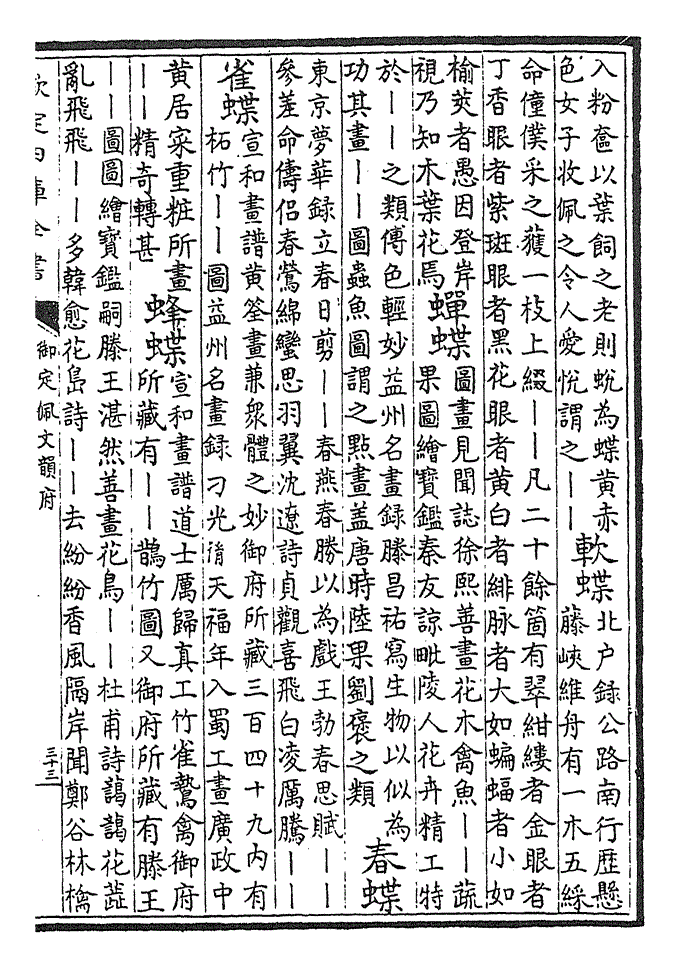 入粉奩以葉飼之老則蛻為蝶黃赤
色女子收佩之令人愛悅謂之——
軟蝶
北户録公路南行歴懸
藤峽維舟有一木五綵
命僮僕采之獲一枝上綴——凡二十餘箇有翠紺縷者金眼者
丁香眼者紫斑眼者黑花眼者黄白者緋脉者大如蝙蝠者小如
榆莢者愚因登岸
視乃知木葉花焉
蟬蝶
圖畫見聞誌徐熙善畫花木禽魚——蔬
果圖繪寶鑑秦友諒毗陵人花卉精工特
於——之類傅色輕妙益州名畫録滕昌祐寫生物以似為
功其畫——圖蟲魚圖謂之點畫盖唐時陸果劉褒之類
春蝶
東京夢華録立春日剪——春燕春勝以為戲王勃春思賦——
參差命儔侶春鶯綿蠻思羽翼沈遼詩貞觀喜飛白凌厲騰——
雀蝶
宣和畫譜黄筌畫兼衆體之妙御府所藏三百四十九內有
柘竹——圖益州名畫録刁光胤天福年入蜀工畫廣政中
黄居寀重粧所畫
——精奇轉甚
蜂蝶
宣和畫譜道士厲歸真工竹雀鷙禽御府
所藏有——鵲竹圖又御府所藏有滕王
——圖圖繪寶鑑嗣滕王湛然善畫花鳥——杜甫詩藹藹花蘂
亂飛飛——多韓愈花島詩——去紛紛香風隔岸聞鄭谷林檎
欽定四庫全書
御定佩文韻府
三十三